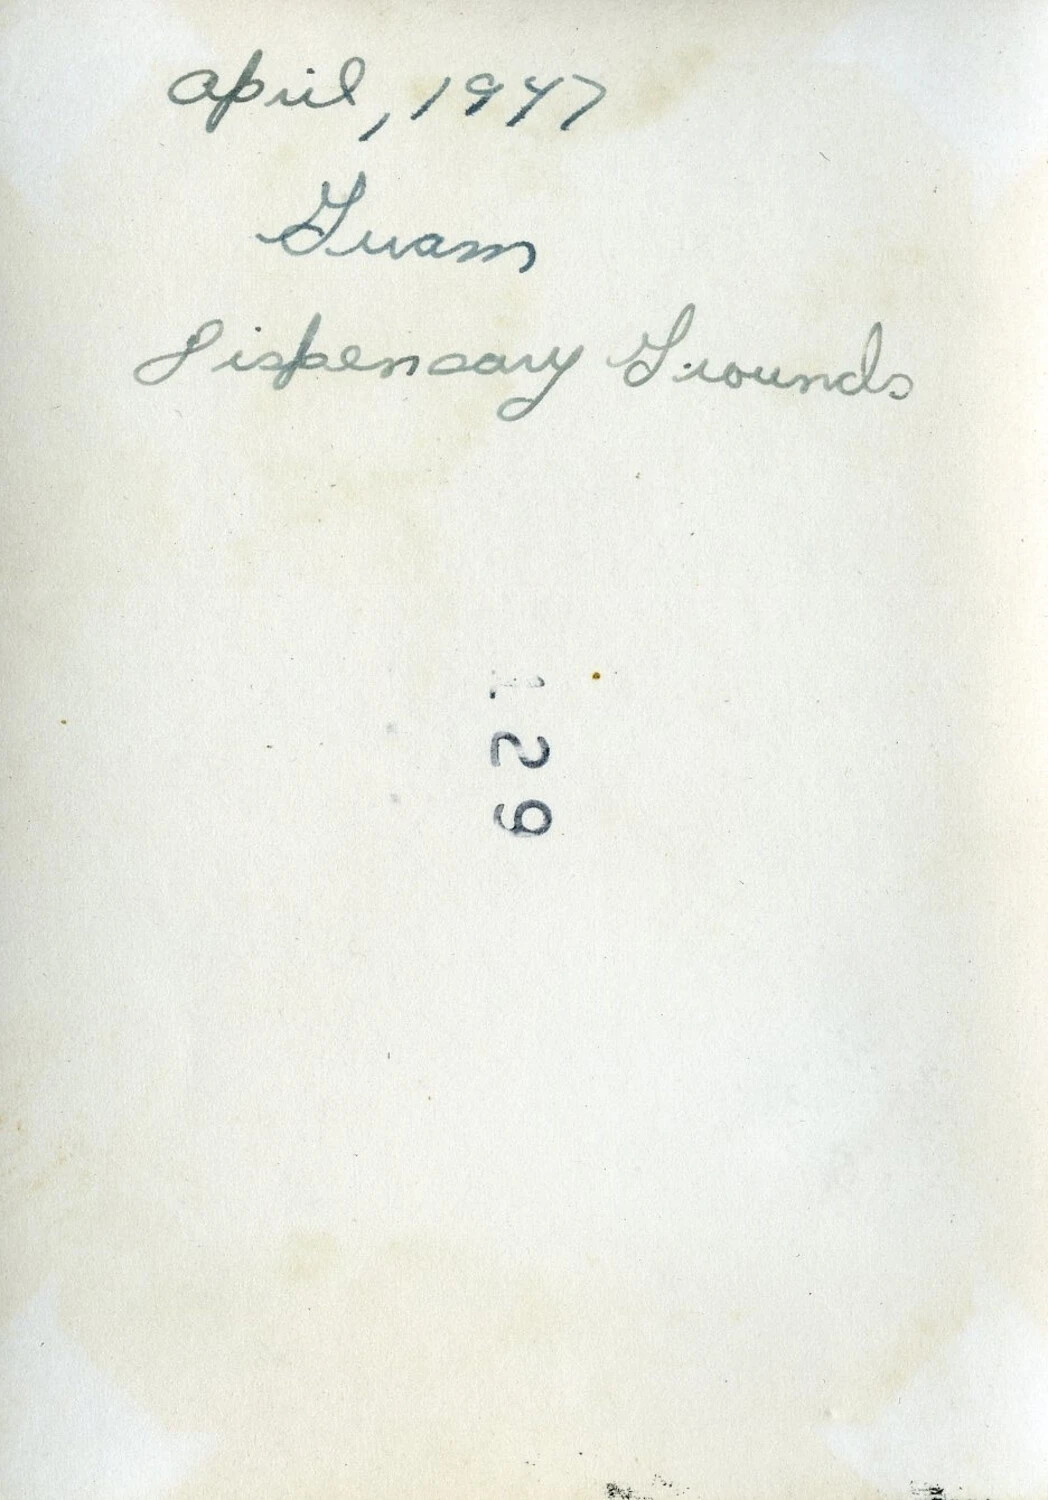 April, 1947
Guam
Dispensary Grounds
129